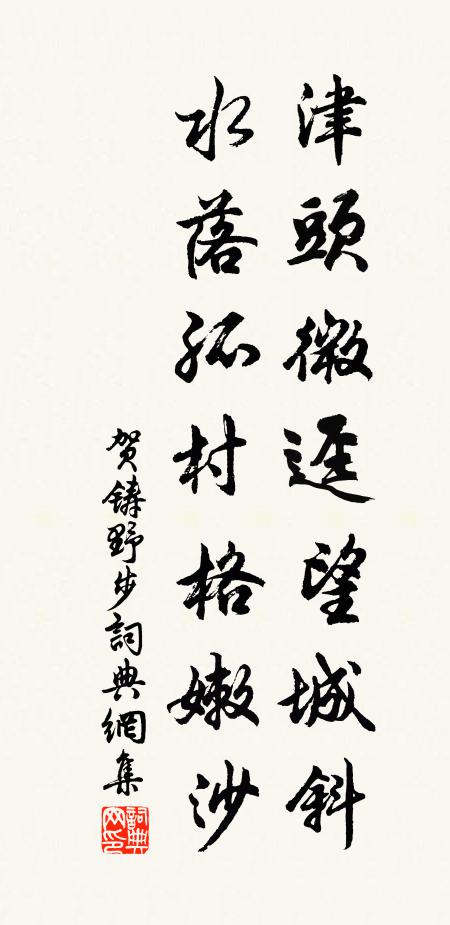 津頭微逕望城斜
水落孤村格嫩沙
贺鑄野步詞典網集
詞典网印